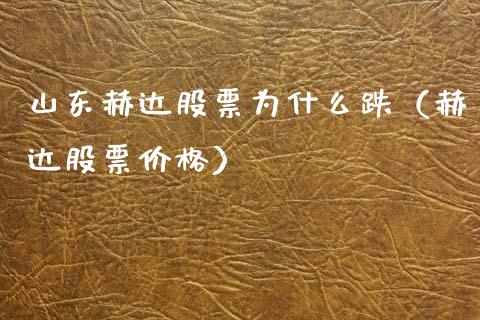 山东赫达股票为什么跌（赫
达股票价格）